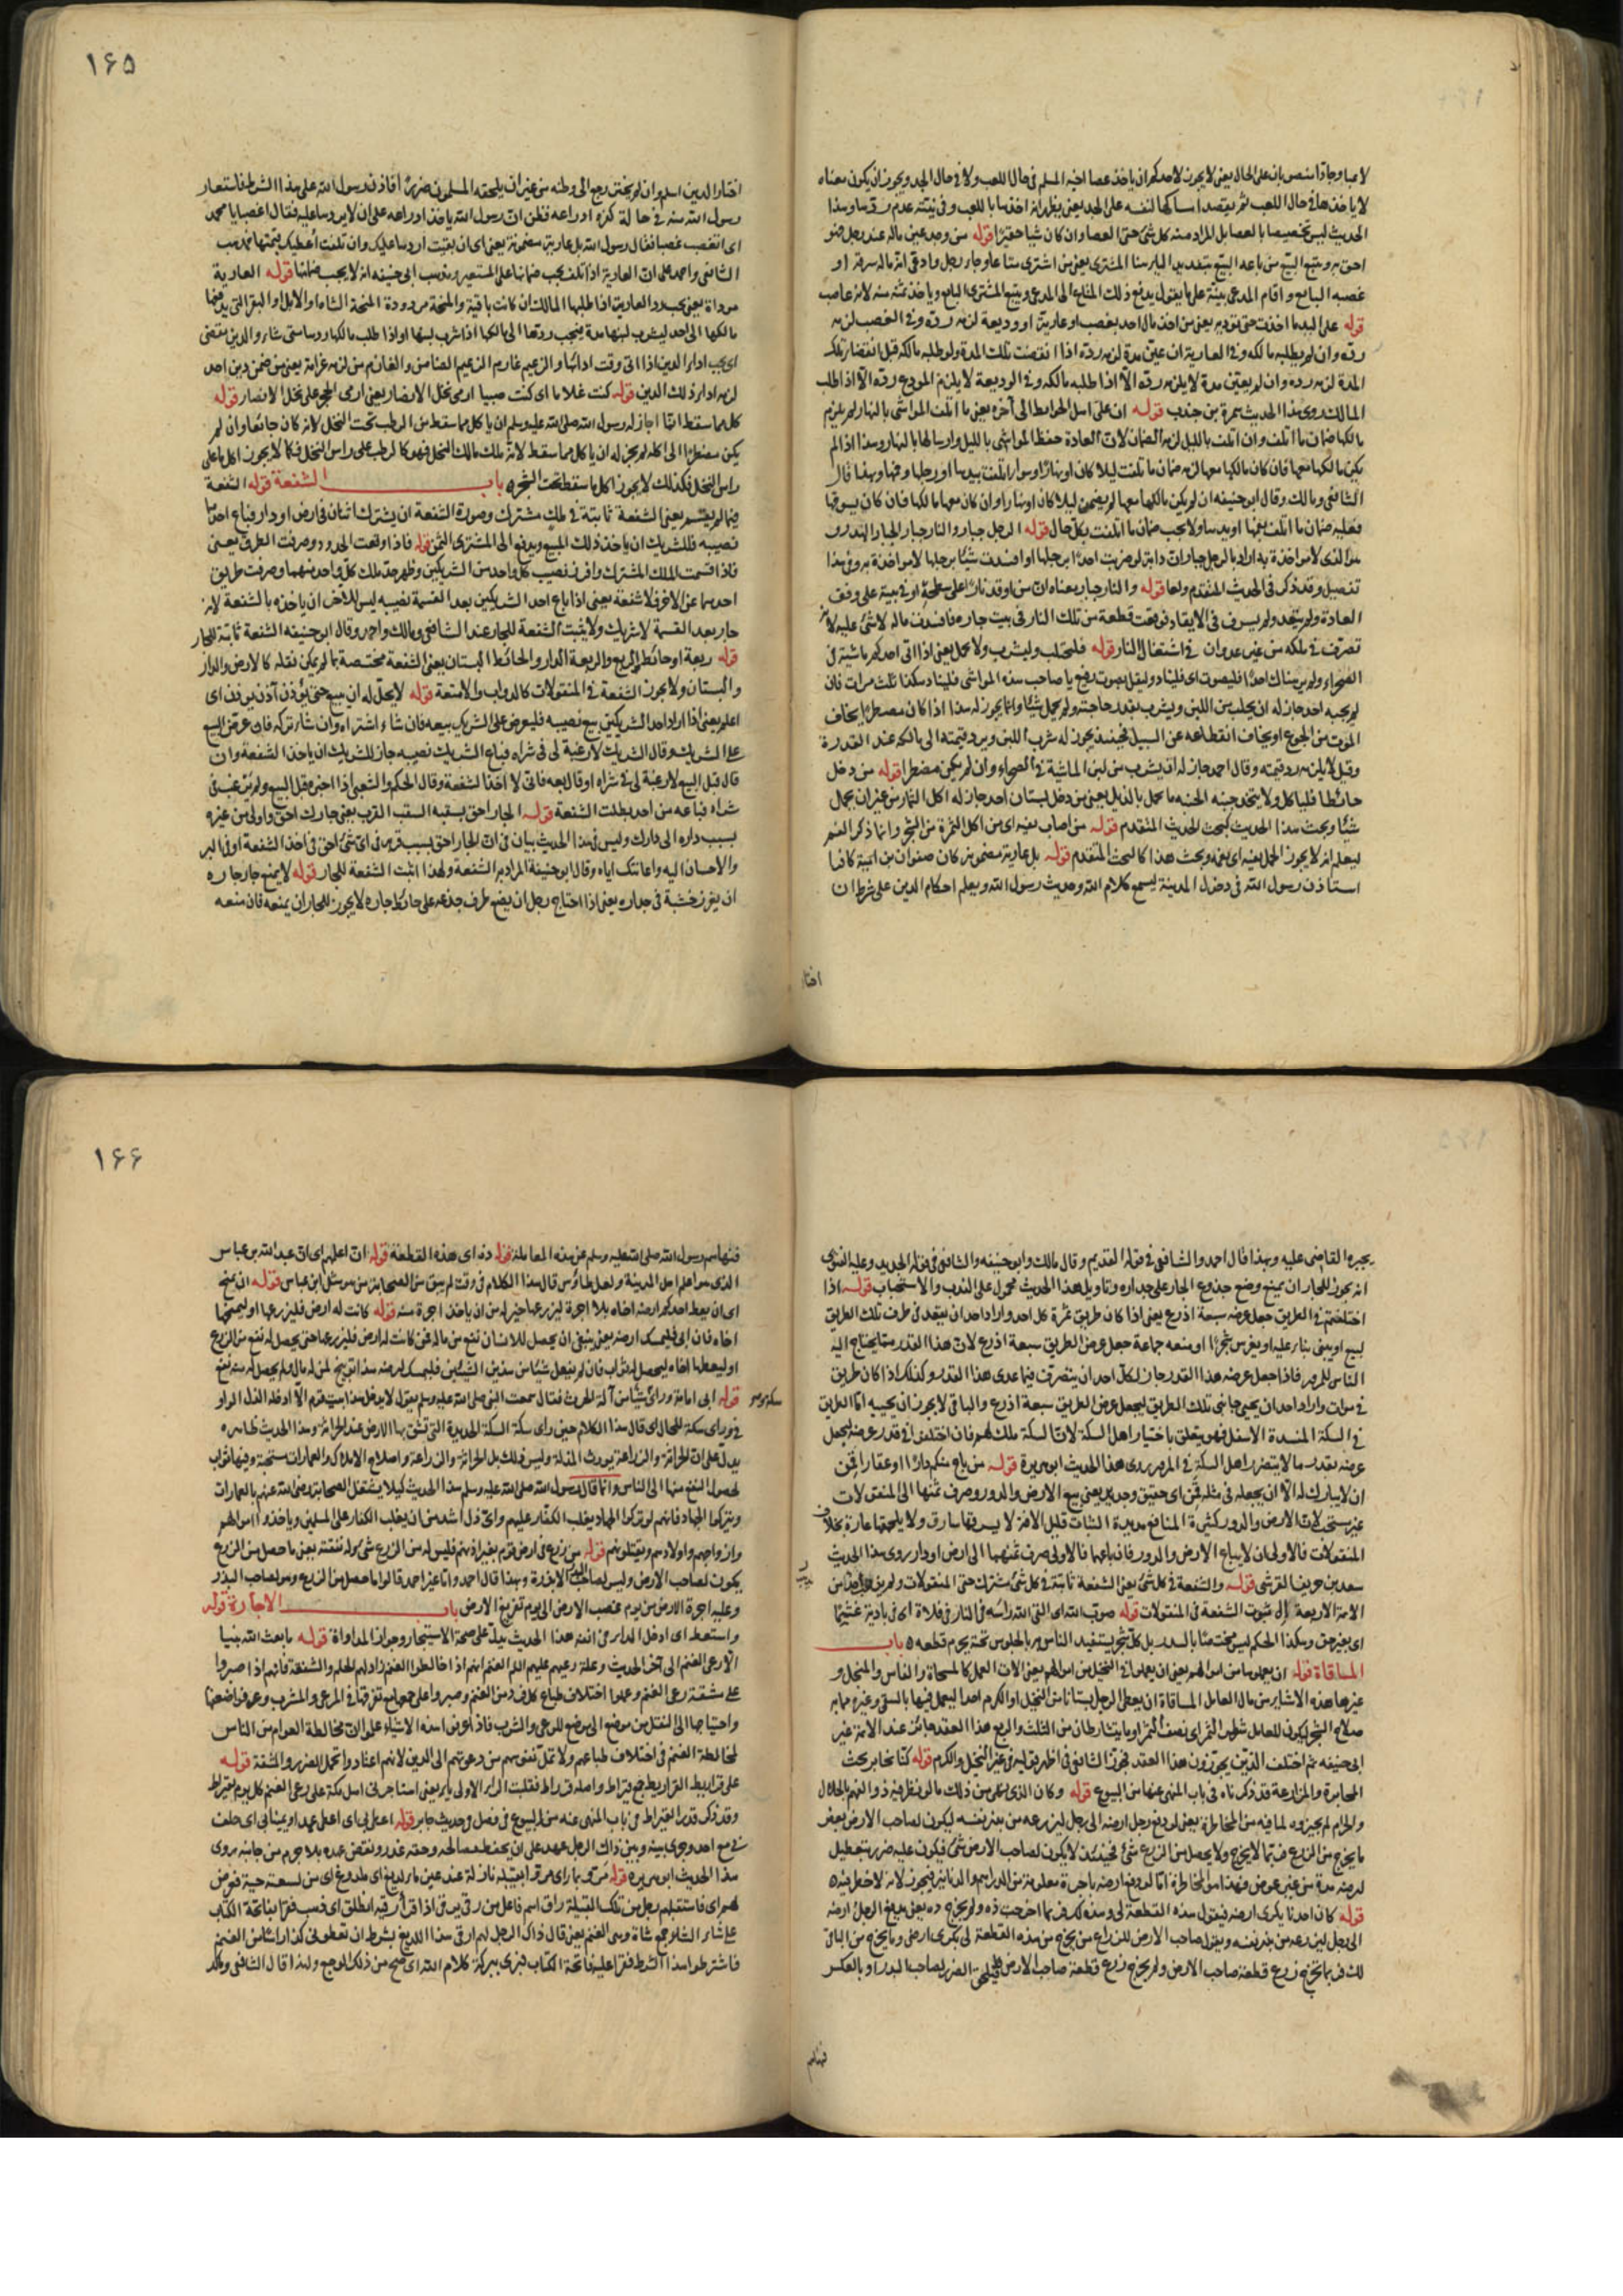 لاعبا وجادا منصوبان على الحال يعني لا يجوز لاحدكم ان ياخذ عصا اخيه المسلم في حال اللعب ولا في حال الجد ويجوز ان يكون معناه
لا ياخذها في حال اللعب ثم يقصد امساكها لنفسه على الجد يعني يظهر انه اخذها باللعب وفي نيته عدم ردها وهذا
الحديث ليس تخصيصا بالعصا بل المراد منه كل شئ حتى العصا وان كان شيا حقيرا قوله من وجد عين ماله عند رجل فهو
احق به ويتبع البيع من باعه البيع بتشديد الياء هنا المشترى يعني من اشترى متاعا وجاء رجل وادعى انه ماله سرقه او
غصبه البايع واقام المدعى بينة على ما يقول يدفع ذلك المتاع الى المدعى ويتبع المشترى البايع وياخذ ثمنه منه لانه غاصب
قوله على اليد ما اخذت حتى تؤديه يعني من اخذ مال احد بغصب او عارية او وديعة لزمه رده وفي الغصب لزمه
رده وان لم يطلبه مالكه وفي العارية ان عين مدة لزمه رده اذا انقضت تلك المدة ولو طلبه مالكه قبل انقضاء تلك
المدة لزمه رده وان لم يعين مدة لا يلزمه رده الا اذا طلبه مالكه وفي الوديعة لا يلزم المودع رده الا اذا طلب
المالك روى هذا الحديث سمرة بن جندب قوله ان على اهل الحوايط الى آخره يعني ما اتلف المواشى بالنهار لم يلزم
مالكها ضمان ما اتلف وان اتلف بالليل لزمه الضمان لان العادة حفظ المواشى بالليل وارسالها بالنهار وهذا اذا لم
يكن مالكها معها فان كان مالكها معها لزمه ضمان ما تلفت ليلا كان او نهارا وسواء اتلفت بيدها او رجلها وفمها وبهذا قال
الشافعى ومالك وقال ابو حنيفه ان لم يكن مالكها معها لم يضمن ليلا كان او نهارا وان كان معها مالكها فان كان يسوقها
فعليه ضمان ما اتلف بفمها او يدها ولا يجب ضمان ما اتلفت بكل حال قوله الرجل جبار والنار جبار الجبار الهدر
هو الذى لا مواخذة به اراد بالرجل جبار ان دابة لو ضربت احدا برجلها او افسدت شيئا برجلها لا مواخذة به وفي هذا
تفصيل وقد ذكر في الحديث المتقدم ولها قوله والنار جبار معناه ان من اوقد نارا على سطحه او في بيته على وفق
العادة ولم يتعد ولم يسرف في الايقاد فوقعت قطعة من تلك النار في بيت جاره فافسدت ماله لا شئ عليه لانه
تصرف في ملكه من غير عدوان في اشتغال النار قوله فليحتلب وليشرب ولا يحمل يعني اذا اتى احدكم ماشية في
الصحراء ولم ير هناك احدا فليصوت اى فليناد وليقل بصوت رفيع يا صاحب هذه المواشى فليناد هكذا ثلث مرات فان
لم يجبه احد جاز له ان يحلب من اللبن ويشرب بقدر حاجته ولم يحمل شيئا وانما يجوز له هذا اذا كان مضطرا يخاف
الموت من الجوع او يخاف انقطاعه عن السبيل فحينئذ يجوز له شرب اللبن ويرد قيمته الى مالكه عند القدرة
وقيل لا يلزمه رد قيمته وقال احمد جاز له ان يشرب من لبن الماشية في الصحراء وان لم يكن مضطرا قوله من دخل
حائطا فلياكل ولا يتخذ خبنه الخبنه ما يحمل بالذيل يعني من دخل بستان احد جاز له اكل الثمار من غير ان يحمل
شيئا وبحث هذا الحديث كبحث الحديث المتقدم قوله من اصاب بفيه اى من اكل الثمرة من الشجر وانما ذكر الفم
ليعلم انه لا يجوز الحمل بفيه اى بفمه وبحث هذا كالبحث المتقدم قوله بل عارية مضمونة كان صفوان بن امية كافرا
استاذن رسول الله في دخول المدينة ليسمع كلام الله وحديث رسول الله ويعلم احكام الدين على شرط ان
اختار
١٦٥
اختار الدين اسلم وان لم يختر رجع الى وطنه من غير ان يلحقه المسلمون ضررا فاذن رسول الله على هذا الشرط فاستعار
رسول الله منه في حالة كفره ادراعه فظن ان رسول الله ياخذ ادراعه على ان لا يردها عليه فقال اغصبا يا محمد
اى اتغصب غصبا فقال رسول الله بل عارية مضمونة يعني اى ان بقيت اردها عليك وان تلفت اعطيك قيمتها مذهب
الشافعى واحمد على ان العارية اذا تلفت يجب ضمانها على المستعير ومذهب ابى حنيفه انه لا يجب ضمانها قوله العارية
مرداة يعني يجب رد العارية اذا طلبها المالك ان كانت باقية والمنحة مردودة المنحة الشاة او الابل او البقر التى يدفعها
مالكها الى احد ليشرب لبنها مدة فيجب ردها الى مالكها اذا شرب لبنها او اذا طلب مالكها ردها متى شاء والدين مقضى
اى يجب اداء الدين اذا اتى وقت ادائه والزعيم غارم الزعيم الضامن والغارم من لزمه غرامة يعني من ضمن دين احد
لزمه اداء ذلك الدين قوله كنت غلاما اى كنت صبيا ارمى نخل الانصار يعني ارمى الحجر على نخل الانصار قوله
كل مما سقط انما اجاز له رسول الله صلى الله عليه وسلم ان ياكل مما سقط من الرطب تحت النخل لانه كان جائعا وان لم
يكن مضطرا الى اكله لم يجز له ان ياكل مما سقط لانه ملك مالك النخل فهو كالرطب على راس النخل فكما لا يجوز اكل ما على
راس النخل فكذلك لا يجوز اكل ما سقط تحت الشجره باب الشفعة قوله الشفعة
فيما لم يقسم يعني الشفعة ثابتة في ملك مشترك وصورة الشفعة ان يشترك اثنان في ارض او دار فباع احدهما
نصيبه فللشريك ان ياخذ ذلك المبيع ويدفع الى المشترى الثمن قوله فاذا وقعت الحدود وصرفت الطرق يعني
فاذا قسمت الملك المشترك وافرز نصيب كل واحد من الشريكين وظهر حد ملك كل واحد منهما وصرفت طريق
احدهما عن الاخر فلا شفعة يعني اذا باع احد الشريكين بعد القسمة نصيبه ليس للاخر ان ياخذه بالشفعة لانه
جار بعد القسمة لا شريك ولا يثبت الشفعة للجار عند الشافعى ومالك واحمد وقال ابو حنيفه الشفعة ثابتة للجار
قوله ربعة او حائط الربع والربعة الدار والحائط البستان يعني الشفعة مختصة بما لم يمكن نقله كالارض والدار
والبستان ولا يجوز الشفعة في المنقولات كالدواب والامتعة قوله لا يحل له ان يبيع حتى يؤذن آذن يؤذن اى
اعلم يعني اذا اراد احد الشريكين بيع نصيبه فليعرض على الشريك بيعه فان شاء اشتراه وان شاء تركه فان عرض البيع
على الشريك وقال الشريك لا رغبة لى في شراه فباع الشريك نصيبه جاز للشريك ان ياخذ الشفعة وان
قال قبل البيع لا رغبة لى في شراه او قال بعه فانى لا اخذ الشفعة وقال الحكم والشعبى اذا اخبر قبل البيع ولم يرغب في
شراه فباعه من احد بطلت الشفعة قوله الجار احق بسقبه السقب القرب يعني جارك احق واولى من غيره
بسبب داره الى دارك وليس في هذا الحديث بيان في ان الجار احق بسبب قربه في اى شئ احق في اخذ الشفعة او في البر
والاحسان اليه واعانتك اياه وقال ابو حنيفة المراد به الشفعة ولهذا اثبت الشفعة للجار قوله لا يمنع جار جاره
ان يغرز خشبة في جداره يعني اذا احتاج رجل ان يضع طرف جذعه على حائط جاره لا يجوز للجار ان يمنعه فان منعه
يجبره القاضى عليه وبهذا قال احمد والشافعى في قوله القديم وقال مالك وابو حنيفه والشافعى في قوله الجديد وعليه الفتوى
انه يجوز للجار ان يمنع وضع جذوع الجار على جداره وتاويل هذا الحديث محمول على الندب والاستحباب قوله اذا
اختلفتم في الطريق جعل عرضه سبعة اذرع يعني اذا كان طريق ممرة كل احد واراد احد ان يقعد في طرف تلك الطريق
لبيع او يبنى بناء عليه او يغرس شجرا او منعه جماعة جعل عرض الطريق سبعة اذرع لان هذا القدر مما يحتاج اليه
الناس للمرور فاذا جعل عرضه هذا القدر جاز لكل احد ان يتصرف فيما عدى هذا القدر وكذلك اذا كان طريق
في موات واراد احد ان يحيى جانبى تلك الطريق ليجعل عرض الطريق سبعة اذرع والباقى لا يجوز ان يحييه اما الطريق
في السكة المنسدة الاسفل فهو يتعلق باختيار اهل السكة لان السكة ملك لهم فان اختلفوا في قدر عرضه يجعل
عرضه بقدر ما لا يتضرر اهل السكة في المرور روى هذا الحديث ابو هريرة قوله من باع منكم دارا او عقارا قمن
ان لا يبارك له الا ان يجعله في مثله قمن اى حقيق وجدير يعني بيع الارض والدور وصرف ثمنها الى المنقولات
غير مستحب لان الارض والدور كثيرة المنافع مديدة الثبات قليل الافة لا يسرقها سارق ولا يلحقها غارة بخلاف
المنقولات فالاولى ان لا يباع الارض والدور فان باعها فالاولى صرف ثمنها الى ارض او دار روى هذا الحديث
سعد بن حريث القرشى قوله والشفعة في كل شئ يعني الشفعة ثابتة في كل شئ مشترك حتى المنقولات ولم يقل به احد من
الائمة الاربعة الى ثبوت الشفعة في المنقولات قوله صوب الله اى القى الله راسه في النار في فلاة اى في بادية غشيما
اى بغير حق وهكذا الحكم ليس مختصا بالسدر بل كل شجر يستفيد الناس به بالجلوس تحته يحرم قطعه ٥ باب
المساقاة قوله ان يعملوها من اموالهم يعني ان يعملوا في النخيل من اموالهم يعني الات العمل كالمسحاة والفاس والمنجل و
غيرها هذه الاشياء من مال العامل المساقاة ان يعطى الرجل بستانا من النخيل او الكرم احدا ليعمل فيها بالسقى وغيره مما به
صلاح الشجر ليكون للعامل شطر الثمر اى نصف الثمر او ما يتشارطان من الثلث والربع هذا العقد جائز عند الائمة غير
ابى حنيفه ثم اختلف الذين يجوزون هذا العقد فجوز الشافعى في اظهر قوليه في غير النخيل والكرم قوله كنا نخابر بحث
المخابرة والمزارعة قد ذكرناه في باب المنهى عنها من البيوع قوله وكان الذى نهى من ذلك ما لو نظر فيه ذوو الفهم بالحلال
والحرام لم يجيزوه لما فيه من المخاطرة يعني لو دفع رجل ارضه الى رجل ليزرعه من بذر نفسه ليكون لصاحب الارض بعض
ما يخرج من الزرع فربما لا يخرج ولا يحصل من الزرع شئ فحينئذ لا يكون لصاحب الارض شئ فيكون عليه ضرر بتعطيل
ارضه مدة من غير عوض فهذا هو المخاطرة اما لو دفع ارضه باجرة معلومة من الدراهم والدنانير فيجوز لانه لا خطر فيه ٥
قوله كان احدنا يكرى ارضه فيقول هذه القطعة لى وهذه لك فربما اخرجت ذه ولم يخرج ذه يعني يدفع الرجل ارضه
الى رجل ليزرعه من بذر نفسه ويقول صاحب الارض للزراع ما يخرج من هذه القطعة لى بكرى ارضى وما يخرج من الباقى
لك فربما تخرج زرع قطعة صاحب الارض ولم يخرج زرع قطعة صاحب الارض فيلحق الضرر لصاحب البذر او بالعكس
فنهاهم
١٦٦
فنهاهم رسول الله صلى الله عليه وسلم عن هذه المعاملة قوله ذه اى هذه القطعة قوله ان اعلمهم اى ان عبد الله بن عباس
الذى هو اعلم اهل المدينة ولعل طاؤس قال هذا الكلام في وقت لم يبق من الصحابة من هو مثل ابن عباس قوله ان يمنح
اى ان يعط احدكم ارضه اخاه بلا اجرة ليزرعها خير له من ان ياخذ اجرة منه قوله كانت له ارض فليزرعها او ليمنحها
اخاه فان ابى فليمسك ارضه يعني ينبغى ان يحصل للانسان نفع من ماله فمن كانت له ارض فليزرعها حتى يحصل له نفع من الزرع
او ليعطها اخاه ليحصل له ثواب فان لم يفعل شيئا من هذين الشيئين فليمسك ارضه هذا توبيخ لمن له مال ولم يحصل له منه نفع
قوله ابى امامة وراى شيئا من آلة الحرث فقال سمعت النبى صلى الله عليه وسلم يقول لا يدخل هذا بيت قوم الا ادخله الذل الواو
في وراى سكة للحال اى قال هذا الكلام حين راى سكة السكة الحديدة التى تشق بها الارض عند الحراثة وهذا الحديث ظاهره
يدل على ان الحراثة والزراعة يورث المذلة وليس ذلك بل الحراثة والزراعة واصلاح الاملاك والعمارات مستحبة وفيها ثواب
لحصول النفع منها الى الناس وانما قال رسول الله صلى الله عليه وسلم هذا الحديث كيلا يشتغل الصحابة رضى الله عنهم بالعمارات
ويتركوا الجهاد فانهم لو تركوا الجهاد يغلب الكفار عليهم واى ذل اشد من ان يغلب الكفار على المسلمين وياخذوا اموالهم
وازواجهم واولادهم ويقتلونهم قوله من زرع في ارض قوم بغير اذنهم فليس له من الزرع شئ وله نفقته يعني ما حصل من الزرع
يكون لصاحب الارض وليس لصاحب البذر الا بذره وبهذا قال احمد واما غير احمد قالوا ما حصل من الزرع فهو لصاحب البذر
وعليه اجرة الارض من يوم غصب الارض الى يوم تفريغ الارض باب الاجارة قوله
واستعط اى ادخل الدواء في انفه هذا الحديث يدل على صحة الاستيجار وجواز المداواة قوله ما بعث الله نبيا
الا رعى الغنم الى آخر الحديث وعلة رعيهم عليهم السلام الغنم انهم اذا خالطوا الغنم زاد لهم الحلم والشفقة فانهم اذا صبروا
على مشقة رعى الغنم وعلموا اختلاف طباع كل فرد من الغنم وصبروا على جمعها مع تفرقها في المرعى والمشرب وعرفوا ضعفها
واحتياجها الى النقل من موضع الى موضع للرعى والشرب فاذا عرفوا هذه الاشياء علموا ان مخالطة العوام من الناس
لمخالطة الغنم في اختلاف طباعهم ولا تمل نفوسهم من دعوتهم الى الدين لانهم اعتادوا تحمل الضرر والمشقة قوله
على قراريط القراريط جمع قيراط واصله قراط فقلبت الراء الاولى ياء يعني استاجرنى اهل مكة على رعى الغنم كل يوم بقيراط
وقد ذكر قدر القيراط في باب المنهى عنه من البيوع في فصل في حديث جابر قوله اعطى بى اى اعطى عهدا ويمينا بى اى حلف
بى مع احد وجرى بينه وبين ذاك الرجل عهد على ان يحفظ مصالحه وحقه غدر ونقض عهده بلا جرم من جانبه روى
هذا الحديث ابو هريره قوله مروا بماء اى مروا بقبيلة نازلة عند عين ماء لديغ اى ملدوغ اى من لسعته حية فعرض
لهم اى فاستقبلهم رجل من تلك القبيلة راق اسم فاعل من رقى يرقى اذا قرا رقية انطلق اى ذهب فقرا بفاتحة الكتاب
على شاء الشاء جمع شاة وهى الغنم يعني قال ذاك الرجل لهم ارق هذا اللديغ بشرط ان تعطونى كذا راسا من الغنم
فاشترطوا هذا الشرط فقرا عليه فاتحة الكتاب فبرئ ببركة كلام الله اى صح من ذلك الوجع ولهذا قال الشافعى ومالك